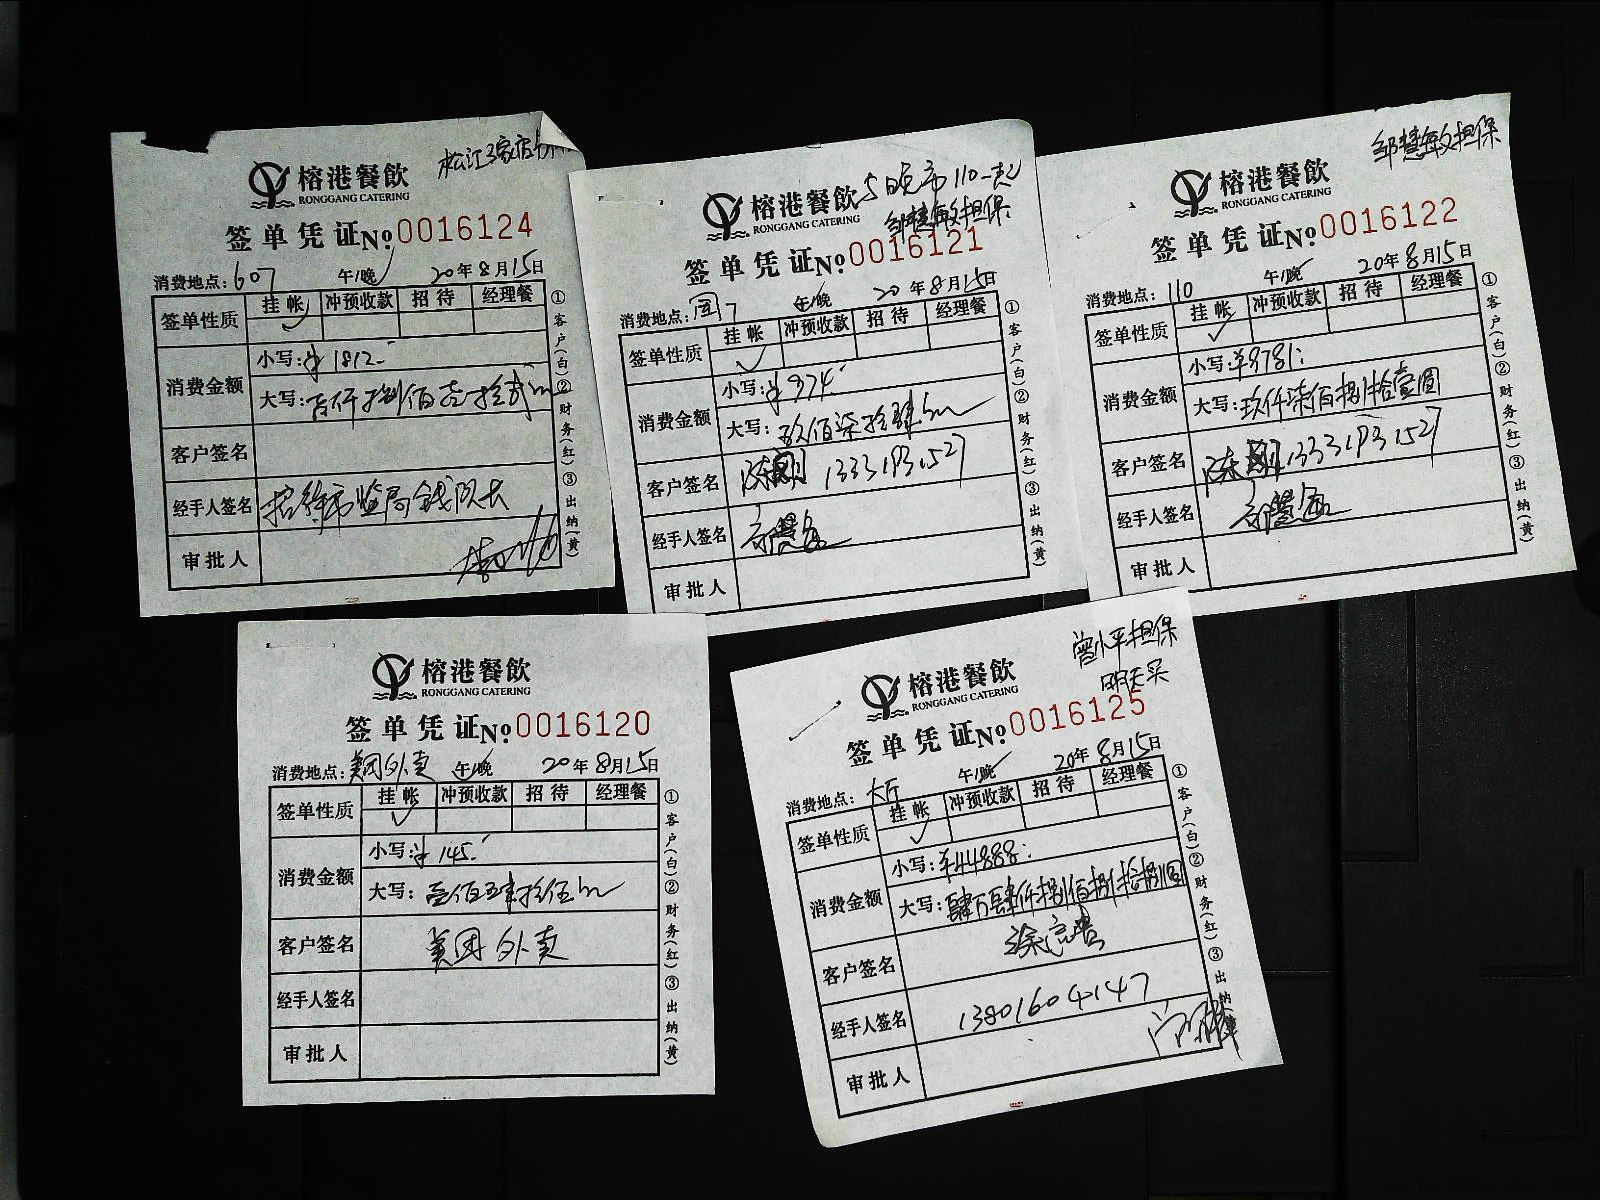 松江3家店
榕港餐飲
RONGGANG CATERING
签单凭证 №0016124
消费地点:607 午/晚 20年8月15日
签单性质 挂帐 冲预收款 招待 经理餐
✓
消费金额 小写:¥1812.-
大写:壹仟捌佰壹拾贰元
客户签名
经手人签名 招待市监局钱队长
审批人
①客户(白)②财务(红)③出纳(黄)
榕港餐飲
RONGGANG CATERING
与晚市110一起
邹慧敏担保
签单凭证 №0016121
消费地点: 午/晚 20年8月15日
签单性质 挂帐 冲预收款 招待 经理餐
✓
消费金额 小写:¥974.-
大写:玖佰柒拾肆元
客户签名 陈刚 13331931527
经手人签名 邹慧敏
审批人
①客户(白)②财务(红)③出纳(黄)
邹慧敏担保
榕港餐飲
RONGGANG CATERING
签单凭证 №0016122
消费地点:110 午/晚 20年8月15日
签单性质 挂帐 冲预收款 招待 经理餐
✓
消费金额 小写:¥9781.-
大写:玖仟柒佰捌拾壹圆
客户签名 陈刚 13331931527
经手人签名 邹慧敏
审批人
①客户(白)②财务(红)③出纳(黄)
榕港餐飲
RONGGANG CATERING
签单凭证 №0016120
消费地点:美团外卖 午/晚 20年8月15日
签单性质 挂帐 冲预收款 招待 经理餐
✓
消费金额 小写:¥145.-
大写:壹佰肆拾伍元
客户签名 美团外卖
经手人签名
审批人
①客户(白)②财务(红)③出纳(黄)
曾小平担保
明天来
榕港餐飲
RONGGANG CATERING
签单凭证 №0016125
消费地点:大厅 午/晚 20年8月15日
签单性质 挂帐 冲预收款 招待 经理餐
✓
消费金额 小写:¥44888.-
大写:肆万肆仟捌佰捌拾捌圆
客户签名
经手人签名 13801604147
审批人
①客户(白)②财务(红)③出纳(黄)